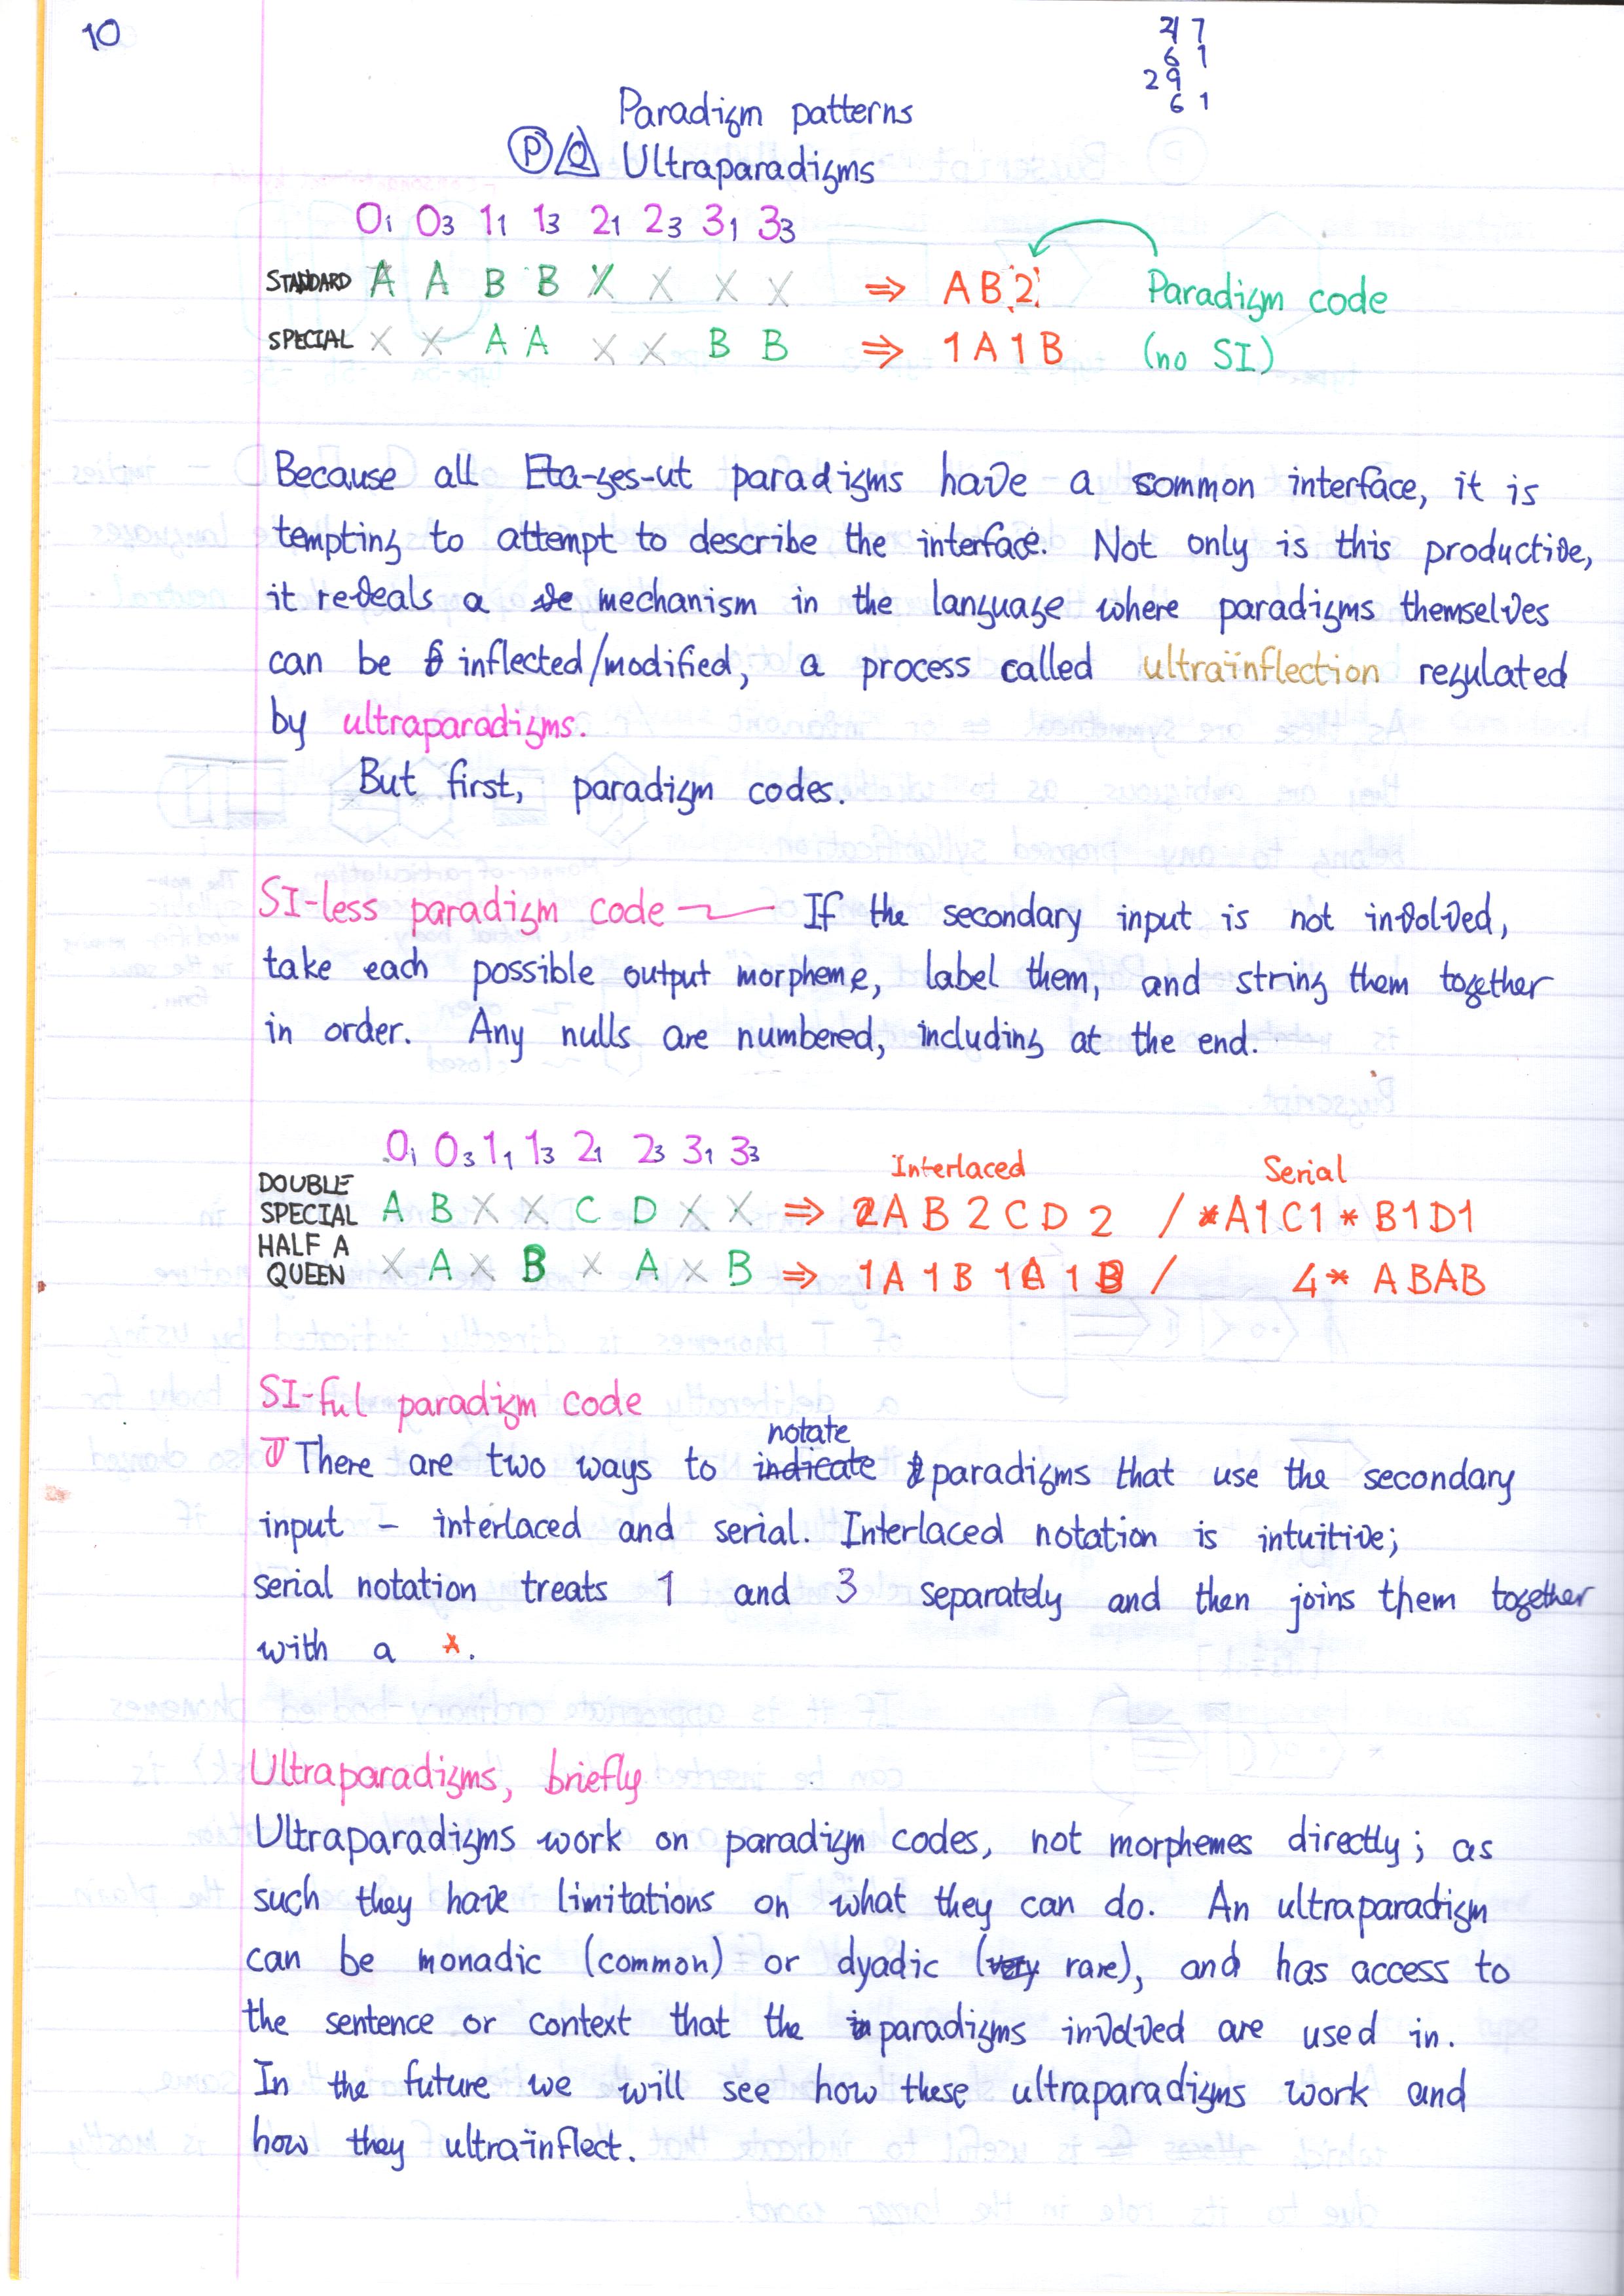 10
217
61
29
61
Paradigm patterns
P Q Ultraparadigms
0₁ 0₃ 1₁ 1₃ 2₁ 2₃ 3₁ 3₃
STANDARD A A B B X X X X ⇒ AB2 Paradigm code
SPECIAL X X A A X X B B ⇒ 1A1B (no SI)
Because all Eta-ges-ut paradigms have a common interface, it is
tempting to attempt to describe the interface. Not only is this productive,
it reveals a mechanism in the language where paradigms themselves
can be inflected/modified, a process called ultraïnflection regulated
by ultraparadigms.
But first, paradigm codes.
SI-less paradigm code — If the secondary input is not involved,
take each possible output morpheme, label them, and string them together
in order. Any nulls are numbered, including at the end.
0₁ 0₃ 1₁ 1₃ 2₁ 2₃ 3₁ 3₃ Interlaced Serial
DOUBLE SPECIAL A B X X C D X X ⇒ AB2CD2 / A1C1*B1D1
HALF A QUEEN X A X B X A X B ⇒ 1A1B1A1B / 4*ABAB
SI-ful paradigm code
There are two ways to notate paradigms that use the secondary
input – interlaced and serial. Interlaced notation is intuitive;
serial notation treats 1 and 3 separately and then joins them together
with a *.
Ultraparadigms, briefly
Ultraparadigms work on paradigm codes, not morphemes directly; as
such they have limitations on what they can do. An ultraparadigm
can be monadic (common) or dyadic (rare), and has access to
the sentence or context that the paradigms involved are used in.
In the future we will see how these ultraparadigms work and
how they ultraïnflect.